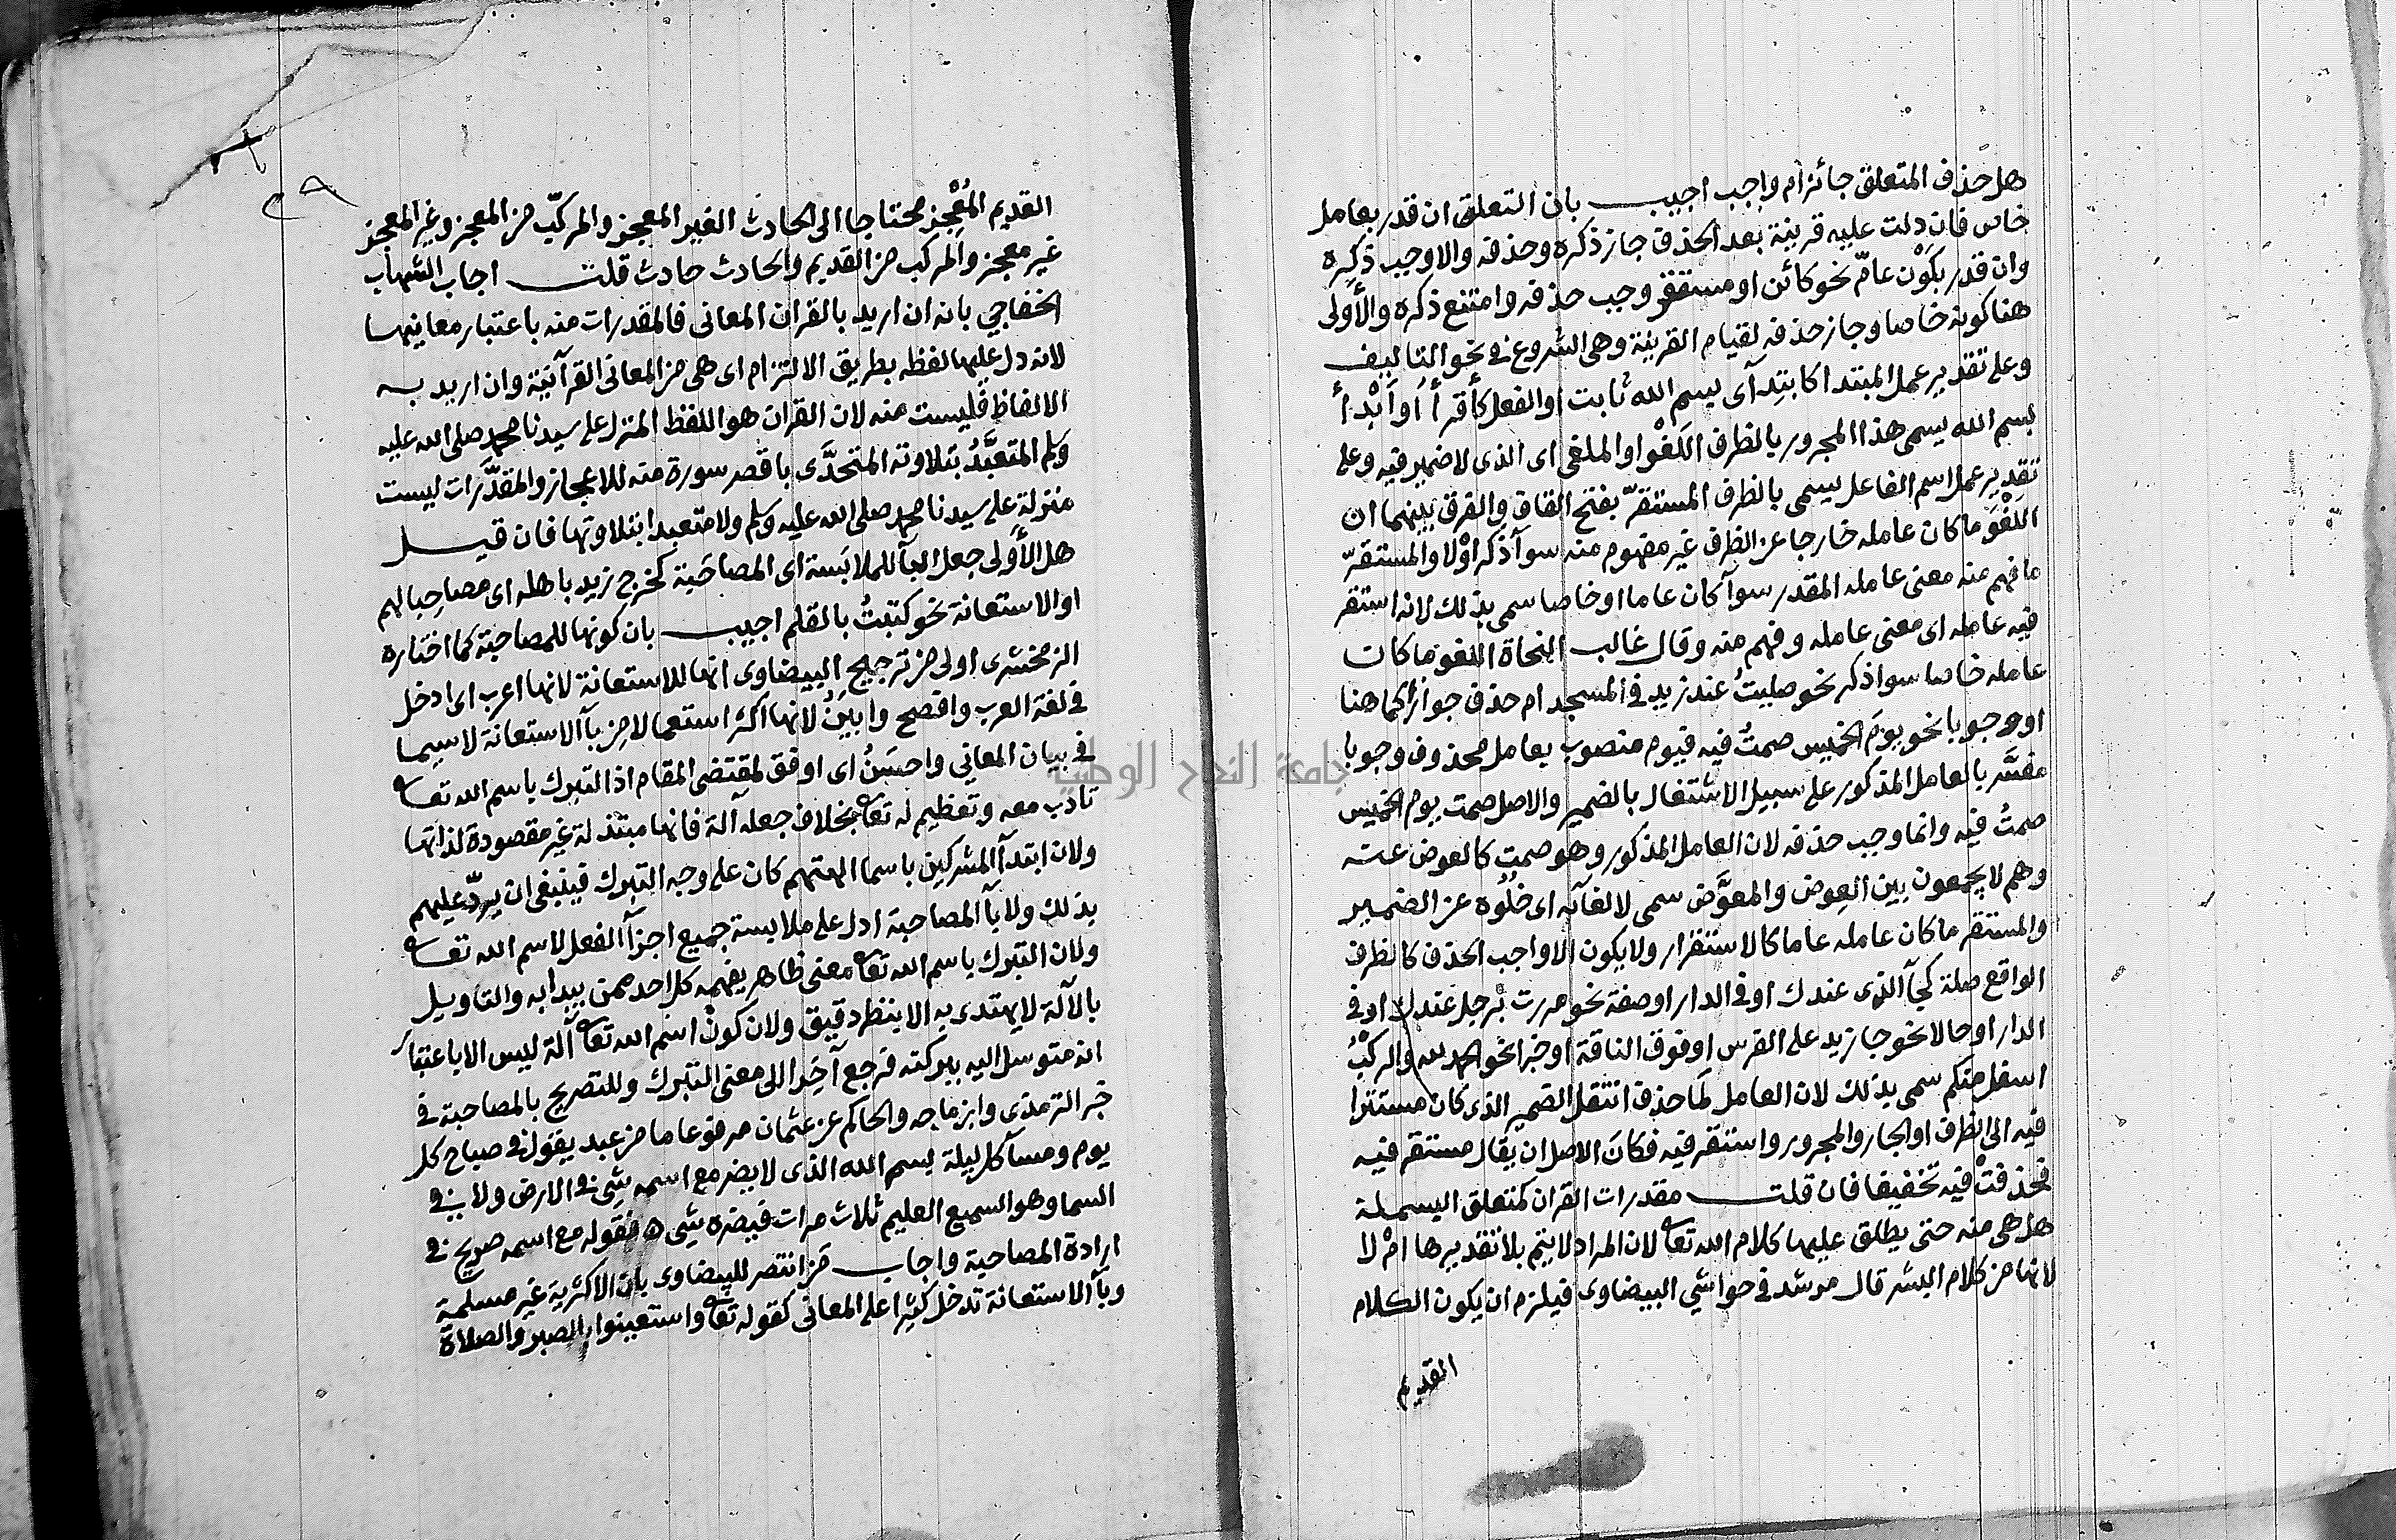 هل حذف المتعلق جائز ام واجب اجيب بان التعلق ان قدر بعامل
خاص فان دلت عليه قرينة بعد الحذف جاز ذكره وحذفه والا وجب ذكره
وان قدر بكَوْن عامّ نحو كائن او مستقر وجب حذفه وامتنع ذكره والأولى
هنا كونه خاصا وجاز حذفه لقيام القرينة وهى الشروع في نحو التاليف
وعلى تقدير عمل المبتدا كابتدآى بسم الله ثابت او الفعل كأقرأ أو أبْدأ
بسم الله يسمى هذا المجرور بالظرف اللَغْو او الملغى اى الذى لا ضمير فيه وعلى
تقدير عمل اسم الفاعل يسمى بالظرف المستقرّ بفتح القاف والفرق بينهما ان
اللغْوَ ما كان عامله خارجا عن الظرف غير مفهوم منه سوآ ذكر اوْلا والمستقرّ
ما فهم منه معنى عامله المقدر سوآ كان عاما او خاصا سمى بذلك لانه استقر
فيه عامله اى معنى عامله وفهم منه وقال غالب النحاة اللغو ما كان
عامله خاصا سوا ذكر نحو صليتُ عند زيد في المسجد ام حذف جوازا كما هنا
او وجوبا نحو يومَ الخميس صمتُ فيه فيوم منصوب بعامل محذوف وجوبا
مفسَّر بالعامل المذكور على سبيل الاشتغال بالضمير والاصل صمت يوم الخميس
صمتُ فيه وانما وجب حذفه لان العامل المذكور وهو صمت كالعوض عنه
وهم لا يجمعون بين العِوض والمعوَّض سمى لالغآئه اى خلُوّه عن الضمير
والمستقر ما كان عامله عاما كالاستقرار ولا يكون الا واجب الحذف كالظرف
الواقع صلة كجآ الذى عندك او في الدار او صفة نحو مررت برجل عندك او في
الدار او حالا نحو جا زيد على الفرس او فوق الناقة او خبرا نحو الحمد لله والركْبُ
اسفل منكم سمى بذلك لان العامل لَمّا حذف انتقل الضمير الذى كان مستترا
فيه الى الظرف او الجار والمجرور واستقر فيه فكان الاصل ان يقال مستقر فيه
فحذفتْ فيه تخفيفا فان قلت مقدرات القران كمتعلق البسملة
هل هى منه حتى يطلق عليها كلام الله تعا لان المراد لا يتم بلا تقديرها امْ لا
لانها من كلام البشر قال مرشد في حواشي البيضاوى فيلزم ان يكون الكلام
القديم
القديم المُعْجِز محتاجا الى الحادث الغير المعجز والمركبّ من المعجز وغير المعجز
غير معجز والمركب من القديم والحادث حادث قلت اجاب الشهاب
الخفاجي بانه ان اريد بالقران المعانى فالمقدرات منه باعتبار معانيها
لانه دل عليها لفظه بطريق الالتزام اى هى من المعانى القرآنية وان اريد به
الالفاظ فليست منه لان القران هو اللفظ المنزل على سيدنا محمد صلى الله عليه
وسلم المتعبَّدُ بتلاوته المتحدَّى باقصر سورة منه للاعجاز والمقدَّرات ليست
منزلة على سيدنا محمد صلى الله عليه وسلم ولا متعبدا بتلاوتها فان قيل
هل الأَولى جعل البآ للملابَسة اى المصاحَبة كخرج زيد باهله اى مصاحِبا لهم
او الاستعانة نحو كتبتُ بالقلم اجيب بان كونها للمصاحبة كما اختاره
الزمخشرى اولى من ترجيح البيضاوى انها للاستعانة لانها اعرب اى ادخل
في لغة العرب وافصح وابينُ لانها اكثر استعمالا من بآ الاستعانة لا سيما
في بيان المعاني واحسَنُ اى اوفق لمقتضى المقام اذ التبرك باسم الله تعا
تادب معه وتعظيم له تعا بخلاف جعله آلة فانها مبتذلة غير مقصودة لذاتها
ولان ابتدآ المشركين باسما الهتهم كان على وجه التبرك فينبغى ان يردّ عليهم
بذلك ولا بآ المصاحبة ادل على ملابسة جميع اجزآ الفعل لاسم الله تعا
ولان التبرك باسم الله تعا معنى ظاهر يفهمه كل احد ممن يبدا به والتاويل
بالآلة لا يهتدى به الا بنظر دقيق ولان كونْ اسم الله تعا آلة ليس الا باعتبار
انه متوسل اليه ببركته فرجع آخِرا الى معنى التبرك وللتصريح بالمصاحبة في
خبر الترمذى وابن ماجه والحاكم عن عثمان مرفوعا ما من عبد يقول في صباح كل
يوم ومسآ كل ليلة بسم الله الذى لا يضر مع اسمه شئ في الارض ولا في
السما وهو السميع العليم ثلاث مرات فيضره شئ ه فقوله مع اسمه صريح في
ارادة المصاحبة واجاب من انتصر للبيضاوى بان الاكثرية غير مسلمة
وبآ الاستعانة تدخل كثيرا على المعانى كقوله تعا واستعينوا بالصبر والصلاة
جامعة النجاح الوطنية